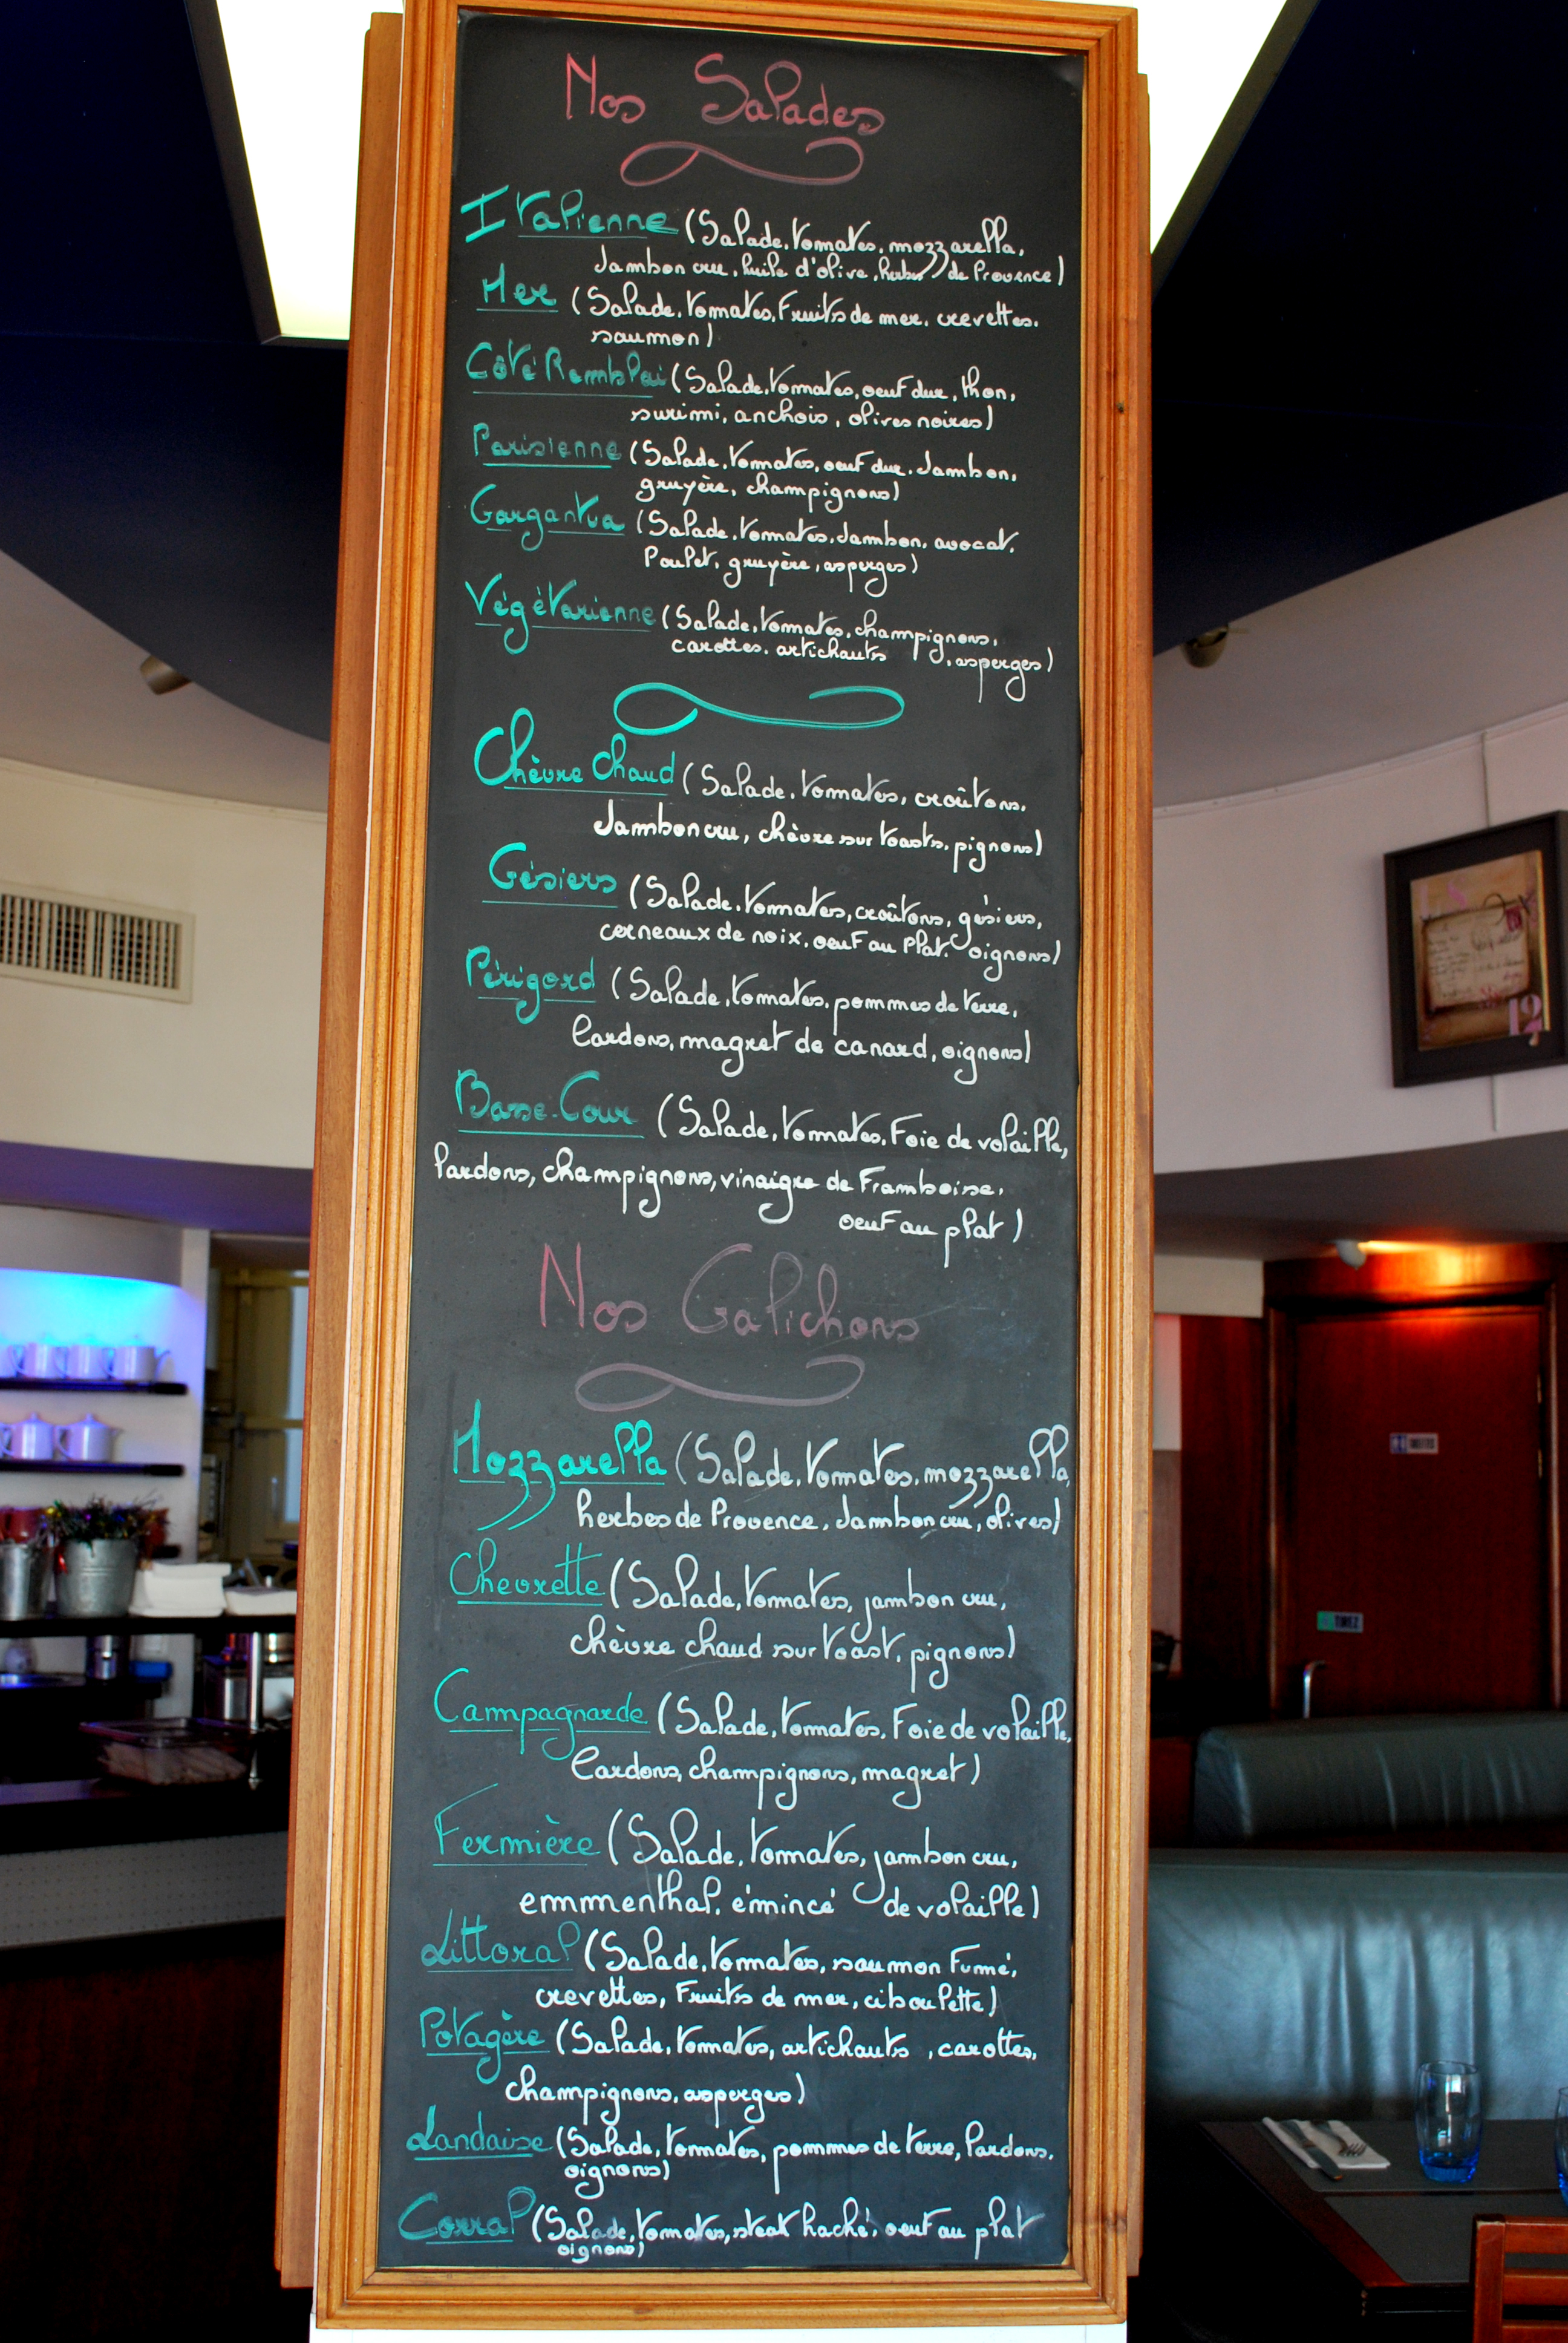 Nos Salades
Italienne (Salade, tomates, mozzarella,
Jambon cru, huile d'olive, herbes de Provence)
Mer (Salade, tomates, Fruits de mer, crevettes,
saumon)
Côté Remblai (Salade, tomates, oeuf dur, thon,
surimi, anchois, olives noires)
Parisienne (Salade, tomates, oeuf dur, Jambon,
gruyère, champignons)
Gargantua (Salade, tomates, Jambon, avocat,
Poulet, gruyère, asperges)
Végétarienne (Salade, tomates, champignons,
carottes, artichauts, asperges)
Chèvre Chaud (Salade, tomates, croûtons,
Jambon cru, chèvre sur toasts, pignons)
Gésiers (Salade, tomates, croûtons, gésiers,
cerneaux de noix, oeuf au plat, oignons)
Périgord (Salade, tomates, pommes de terre,
Lardons, magret de canard, oignons)
Basse-Cour (Salade, tomates, Foie de volaille,
lardons, champignons, vinaigre de Framboise,
oeuf au plat)
Nos Galichons
Mozzarella (Salade, tomates, mozzarella,
herbes de Provence, Jambon cru, olives)
Chevrette (Salade, tomates, jambon cru,
chèvre chaud sur toast, pignons)
Campagnarde (Salade, tomates, Foie de volaille,
Lardons, champignons, magret)
Fermière (Salade, tomates, jambon cru,
emmenthal, émincé de volaille)
Littoral (Salade, tomates, saumon Fumé,
crevettes, Fruits de mer, ciboulette)
Potagère (Salade, tomates, artichauts, carottes,
champignons, asperges)
Landaise (Salade, tomates, pommes de terre, Lardons,
oignons)
Corral (Salade, tomates, steak haché, oeuf au plat
oignons)
12
TIREZ